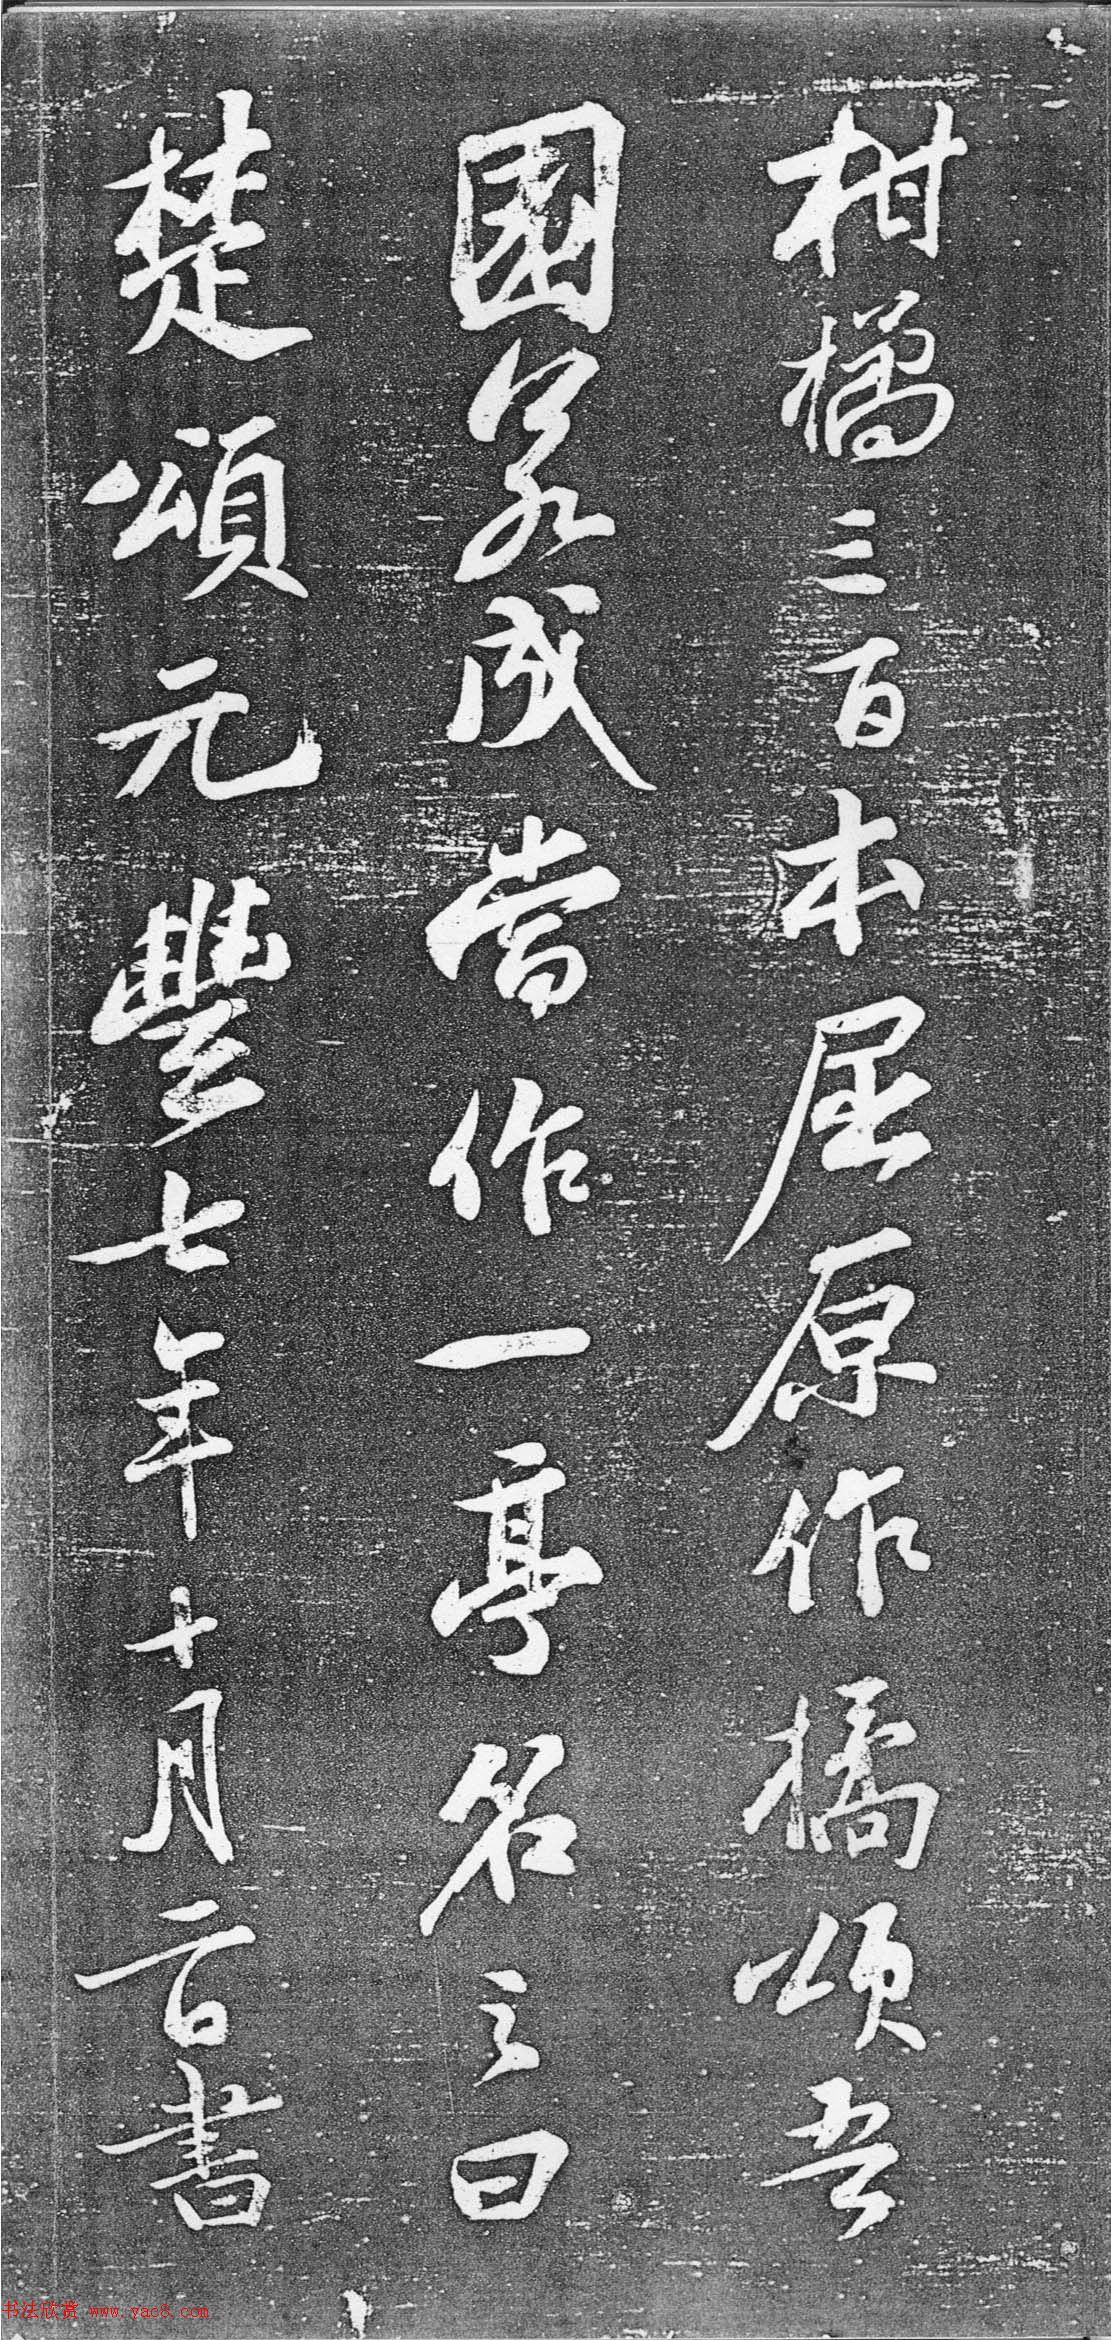 柑橘三百本屈原作橘頌吾
園成當作一亭名之曰
楚頌元豐七年十月二日書
书法欣赏 www.yac8.com